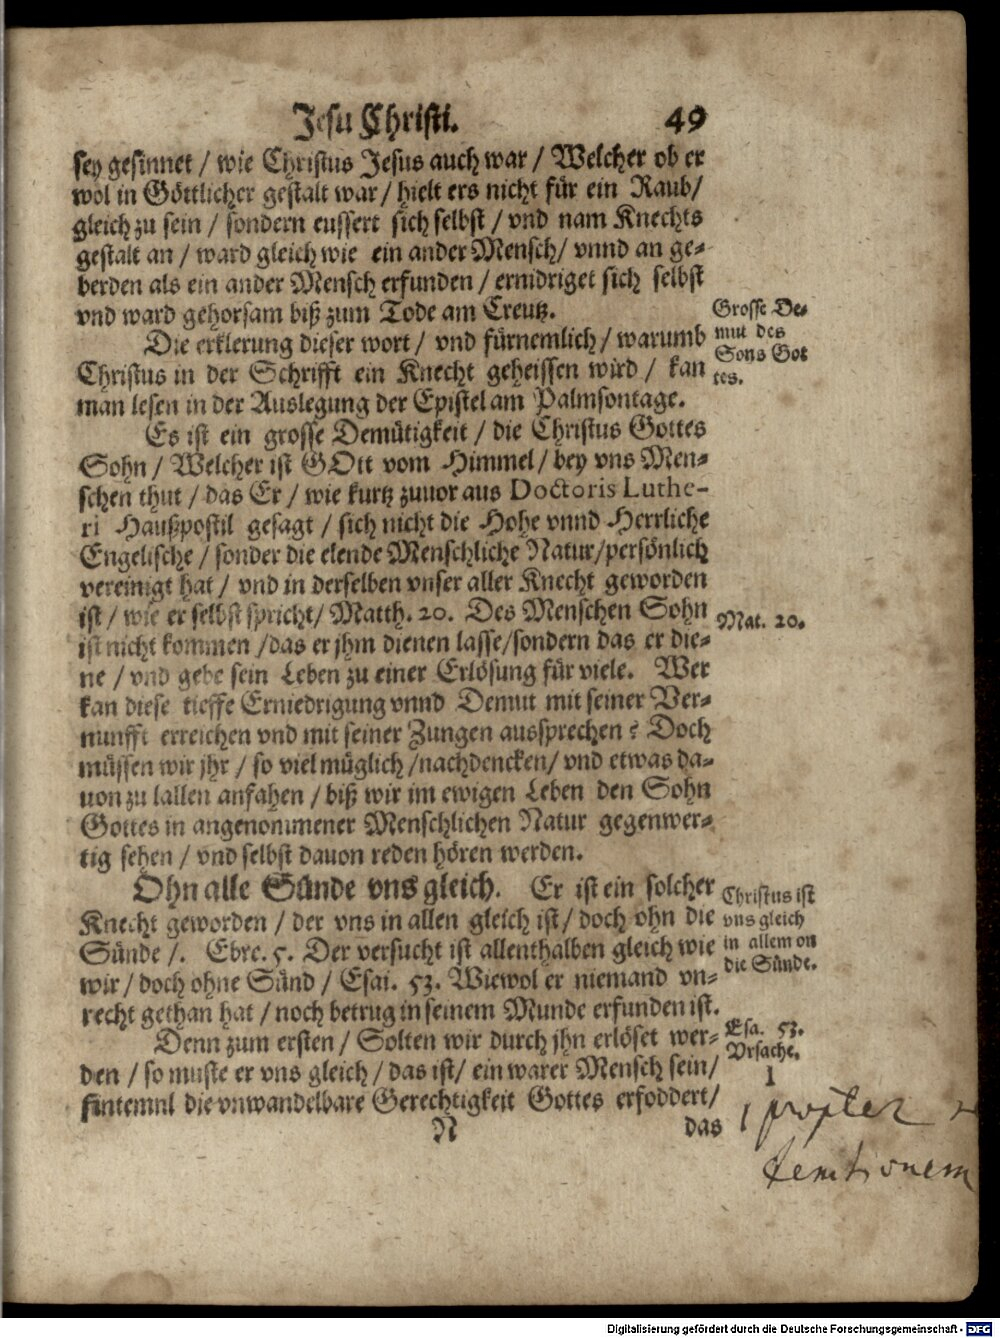 Jesu Christi. 49
sey gesinnet / wie Christus Jesus auch war / Welcher ob er
wol in Göttlicher gestalt war / hielt ers nicht für ein Raub/
gleich zu sein / sondern eussert sich selbst / vnd nam Knechts
gestalt an / ward gleich wie ein ander Mensch/ vnnd an ge-
berden als ein ander Mensch erfunden / ernidriget sich selbst
vnd ward gehorsam biß zum Tode am Creutz.
Grosse De-
mut des
Sons Got
tes.
Die erklerung dieser wort / vnd fürnemlich / warumb
Christus in der Schrifft ein Knecht geheissen wird / kan
man lesen in der Auslegung der Epistel am Palmsontage.
Es ist ein grosse Demütigkeit / die Christus Gottes
Sohn / Welcher ist GOtt vom Himmel / bey vns Men-
schen thut / das Er / wie kurtz zuuor aus Doctoris Luthe-
ri Haußpostil gesagt / sich nicht die Hohe vnnd Herrliche
Engelische / sonder die elende Menschliche Natur/persönlich
vereinigt hat / vnd in derselben vnser aller Knecht geworden
ist / wie er selbst spricht/ Matth. 20. Des Menschen Sohn
Mat. 20.
ist nicht kommen /das er jhm dienen lasse/sondern das er die-
ne / vnd gebe sein Leben zu einer Erlösung für viele. Wer
kan diese tieffe Erniedrigung vnnd Demut mit seiner Ver-
nunfft erreichen vnd mit seiner Zungen aussprechen? Doch
müssen wir jhr / so viel müglich /nachdencken/ vnd etwas da-
uon zu lallen anfahen / biß wir im ewigen Leben den Sohn
Gottes in angenommener Menschlichen Natur gegenwer-
tig sehen / vnd selbst dauon reden hören werden.
Ohn alle Sünde vns gleich. Er ist ein solcher
Christus ist
vns gleich
in allem on
die Sünde.
Knecht geworden / der vns in allen gleich ist / doch ohn die
Sünde /. Ebre. 5. Der versucht ist allenthalben gleich wie
wir / doch ohne Sünd / Esai. 53. Wiewol er niemand vn-
recht gethan hat / noch betrug in seinem Munde erfunden ist.
Esa. 53.
Vrsache.
1
Denn zum ersten / Solten wir durch jhn erlöset wer-
den / so muste er vns gleich / das ist/ ein warer Mensch sein/
sintemnl die vnwandelbare Gerechtigkeit Gottes erfoddert/
N das
1 propter
Digitalisierung gefördert durch die Deutsche Forschungsgemeinschaft - DFG